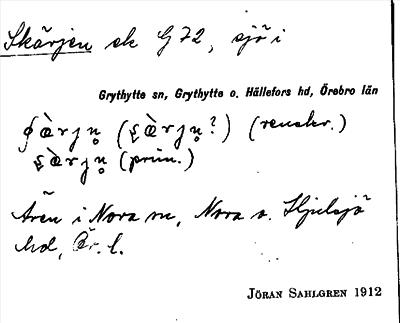 Skärjen ek G 72, sjö i
Grythytte sn, Grythytte o. Hällefors hd, Örebro län
(renskr.)
(prim.)
Även i Nora sn, Nora o. Hjulsjö
hd, Ör. l.
JÖRAN SAHLGREN 1912